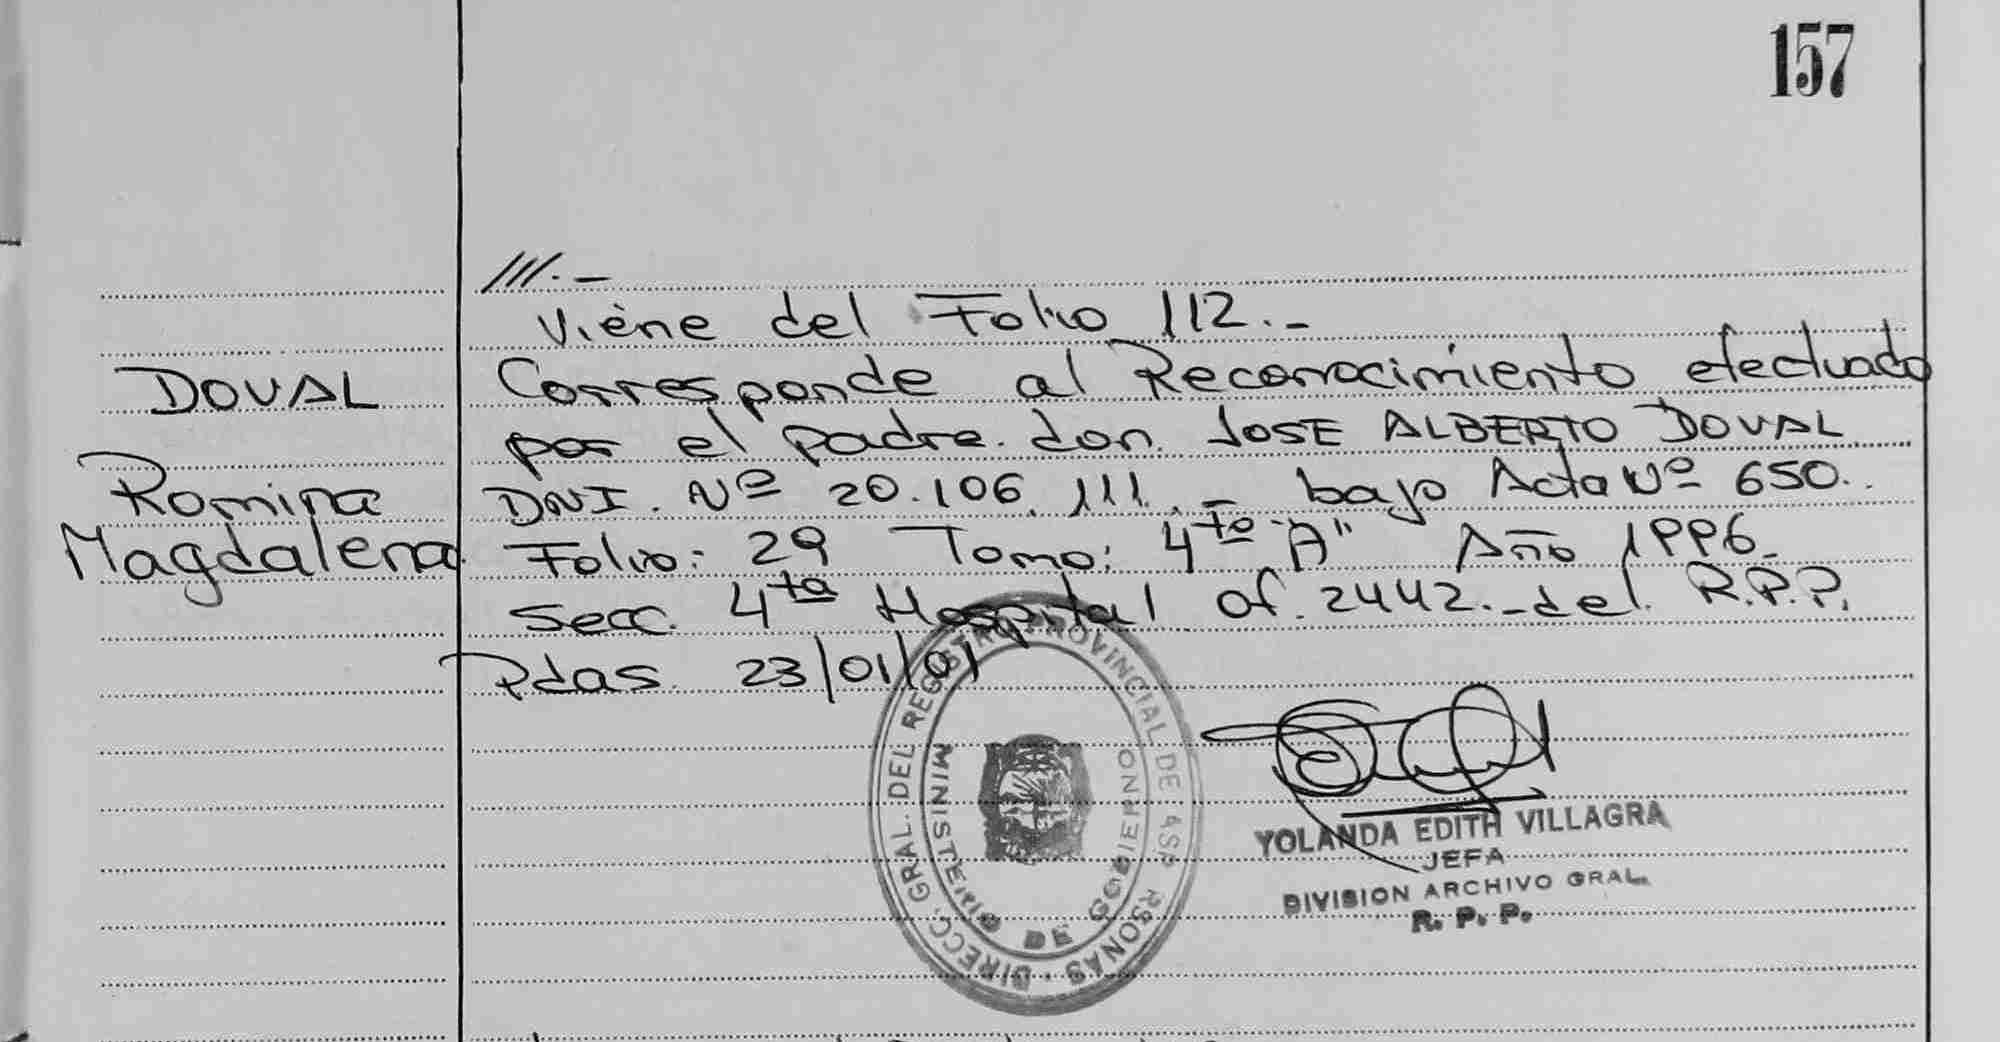 157
///.-
Viene del Folio 112.-
DOVAL Corresponde al Reconocimiento efectuado
por el padre don JOSE ALBERTO DOVAL
Romina DNI. Nº 20.106.111.- bajo Acta Nº 650.
Magdalena Folio: 29 Tomo: 4to "A" Año 1996.
Secc. 4ta Hospital Of. 2442.- del R.P.P.
Pdas. 23/01/01
DIRECC. GRAL. DEL REGISTRO PROVINCIAL DE LAS PERSONAS
MINISTERIO DE GOBIERNO
YOLANDA EDITH VILLAGRA
JEFA
DIVISION ARCHIVO GRAL.
R. P. P.